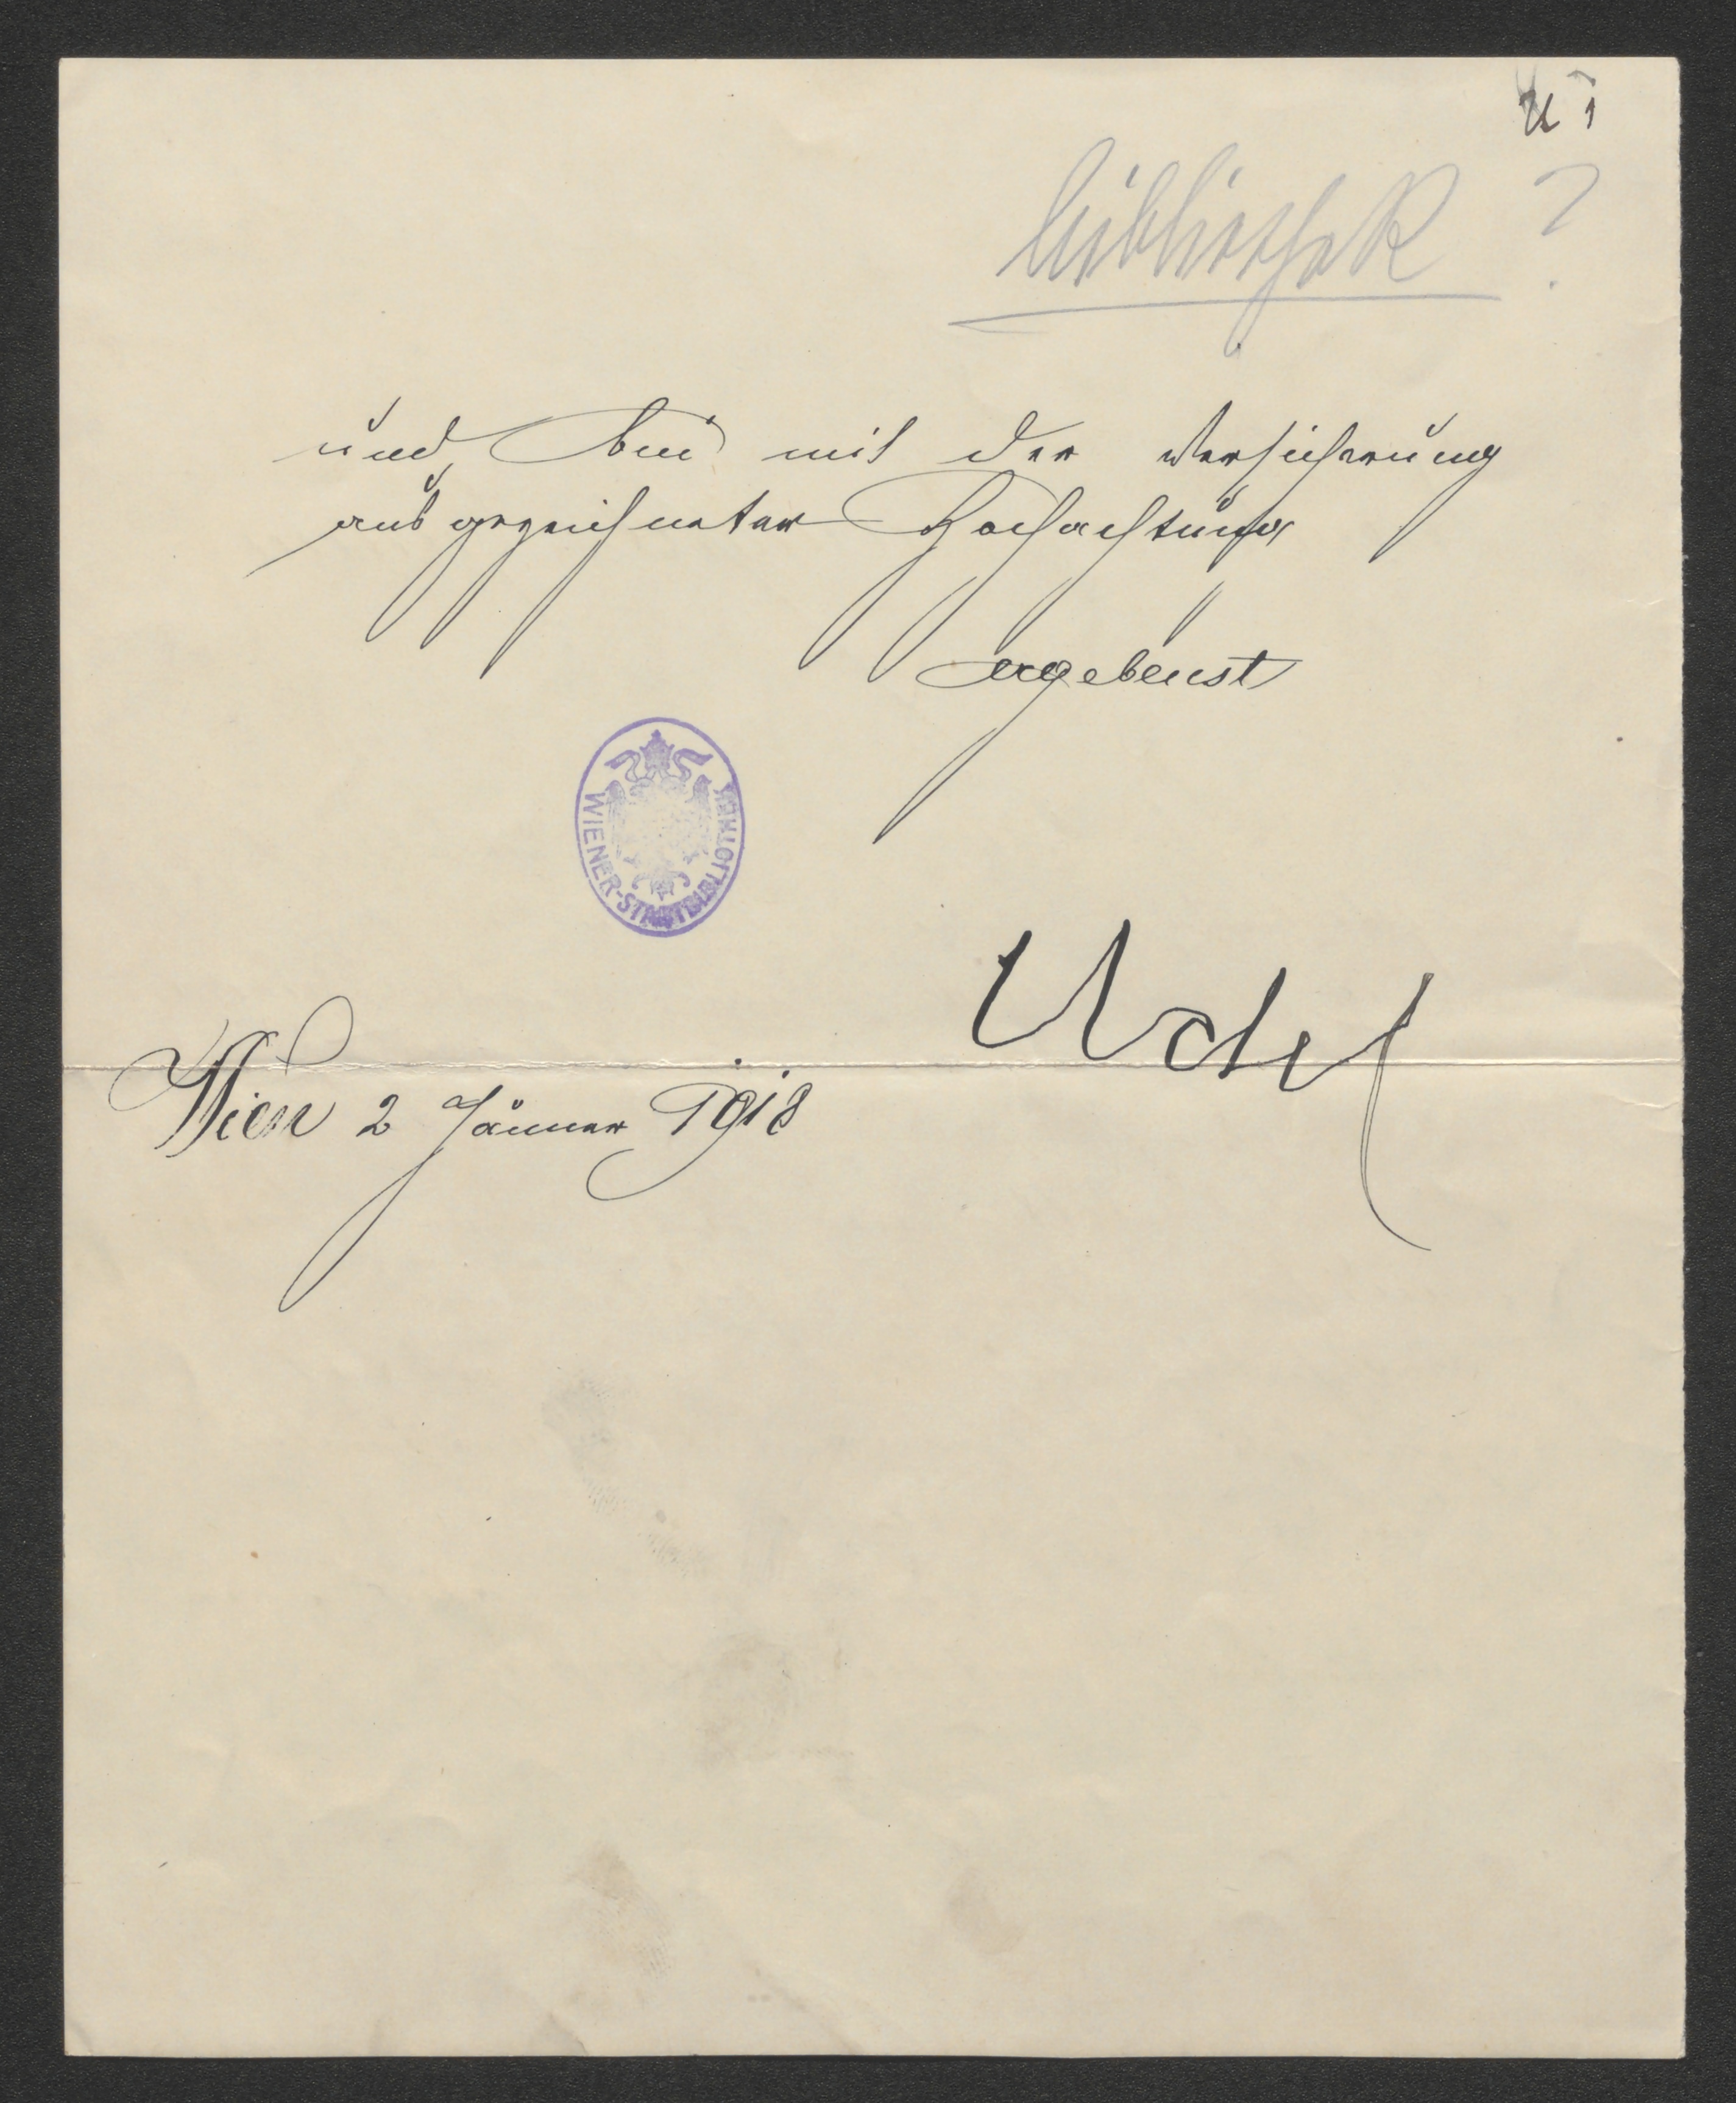 Bibliothek ?
und bin mit der Versicherung
ausgezeichneter Hochachtung
ergebenst
WIENER-STADTBIBLIOTHEK
Udel
Wien 2 Jänner 1918